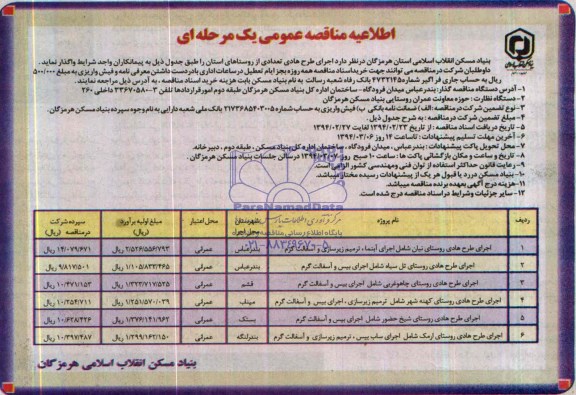 اطلاعیه مناقصه عمومی یک مرحله ای
بنیاد مسکن انقلاب اسلامی استان هرمزگان درنظر دارد اجرای طرح هادی تعدادی از روستاهای استان را طبق جدول ذیل به پیمانکاران واجد شرایط واگذار نماید.
داوطلبان شرکت درمناقصه می توانند جهت خریداسناد مناقصه همه روزه بجز ایام تعطیل درساعات اداری بادردست داشتن معرفی نامه و فیش واریزی به مبلغ ۵۰۰/۰۰۰
ریال به حساب جاری فراگیر شماره ۴۷۳۲۱۴۵ بانک رفاه شعبه رسالت به نام بنیاد مسکن بابت هزینه خرید اسناد مناقصه، به آدرس ذیل مراجعه نمایند.
۱- آدرس دستگاه مناقصه گذار: بندرعباس میدان فرودگاه - ساختمان اداره کل بنیاد مسکن طبقه دوم امور قراردادها تلفن ۳-۳۳۶۷۰۵۸۰ داخلی ۲۶۰
۲- دستگاه نظارت: حوزه معاونت عمران روستایی بنیاد مسکن
۳- نوع تضمین شرکت درمناقصه: الف) ضمانت نامه بانکی ب) فیش واریزی به حساب شماره ۲۱۷۳۶۸۵۴۰۳۰۰۵ بانک ملی شعبه دارایی به نام وجوه سپرده بنیاد مسکن هرمزگان.
۴- مبلغ تضمین شرکت درمناقصه: به شرح جدول ذیل.
۵- تاریخ دریافت اسناد مناقصه: از تاریخ ۱۳۹۴/۰۲/۲۳ لغایت ۱۳۹۴/۰۲/۲۷
۶- آخرین مهلت تسلیم پیشنهادات: تاساعت ۱۴ روز ۱۳۹۴/۰۳/۰۶
۷- محل تحویل پاکت پیشنهادات: بندرعباس، میدان فرودگاه، ساختمان اداره کل بنیاد مسکن، طبقه دوم، دبیرخانه.
۸- تاریخ و ساعت و مکان بازگشائی پاکت ها: ساعت ۱۰ صبح روز ۱۳۹۴/۰۳/۰۷ درسالن جلسات بنیاد مسکن هرمزگان.
۹- رعایت قانون حداکثر استفاده از توان فنی ومهندسی کشور الزامی است.
۱۰- بنیاد مسکن دررد یا قبول هر یک از پیشنهادات رسیده مختار میباشد.
۱۱- هزینه درج آگهی بعهده برنده مناقصه میباشد.
۱۲- سایر جزئیات وشرایط دراسناد مناقصه درج شده است.
ParsNamadData
۰۲۱-۸۸۳۴۹۶۷۰-۵
ردیف نام پروژه شهرستان محل اجرا محل اعتبار مبلغ اولیه برآورد (ریال) سپرده شرکت درمناقصه (ریال)
۱ اجرای طرح هادی روستای نیان شامل اجرای آبنما، ترمیم زیرسازی، بیس و آسفالت گرم بندرعباس عمرانی ۲/۵۲۶/۵۵۶/۷۹۳ ریال ۱۴/۰۷۹/۶۷۱ ریال
۲ اجرای طرح هادی روستای تل سیاه شامل اجرای بیس و آسفالت گرم بندرعباس عمرانی ۱/۱۰۵/۸۳۳/۴۶۵ ریال ۹/۸۱۷/۵۰۱ ریال
۳ اجرای طرح هادی روستای چاهوغربی شامل اجرای بیس و آسفالت گرم قشم عمرانی ۱/۳۲۳/۷۱۷/۵۲۵ ریال ۱۰/۴۷۱/۱۵۳ ریال
۴ اجرای طرح هادی روستای کهنه شهر شامل ترمیم زیرسازی، اجرای بیس و آسفالت گرم میناب عمرانی ۱/۲۵۱/۵۷۰/۰۳۹ ریال ۱۰/۲۵۴/۷۱۱ ریال
۵ اجرای طرح هادی روستای شیخ حضور شامل اجرای بیس و آسفالت گرم بستک عمرانی ۱/۳۷۶/۱۴۱/۹۶۲ ریال ۱۰/۶۲۸/۴۲۶ ریال
۶ اجرای طرح هادی روستای ارمک شامل اجرای ساب بیس، ترمیم زیرسازی و آسفالت گرم بندرلنگه عمرانی ۱/۲۹۹/۱۶۲/۱۵۰ ریال ۱۰/۳۹۷/۴۸۷ ریال
بنیاد مسکن انقلاب اسلامی هرمزگان